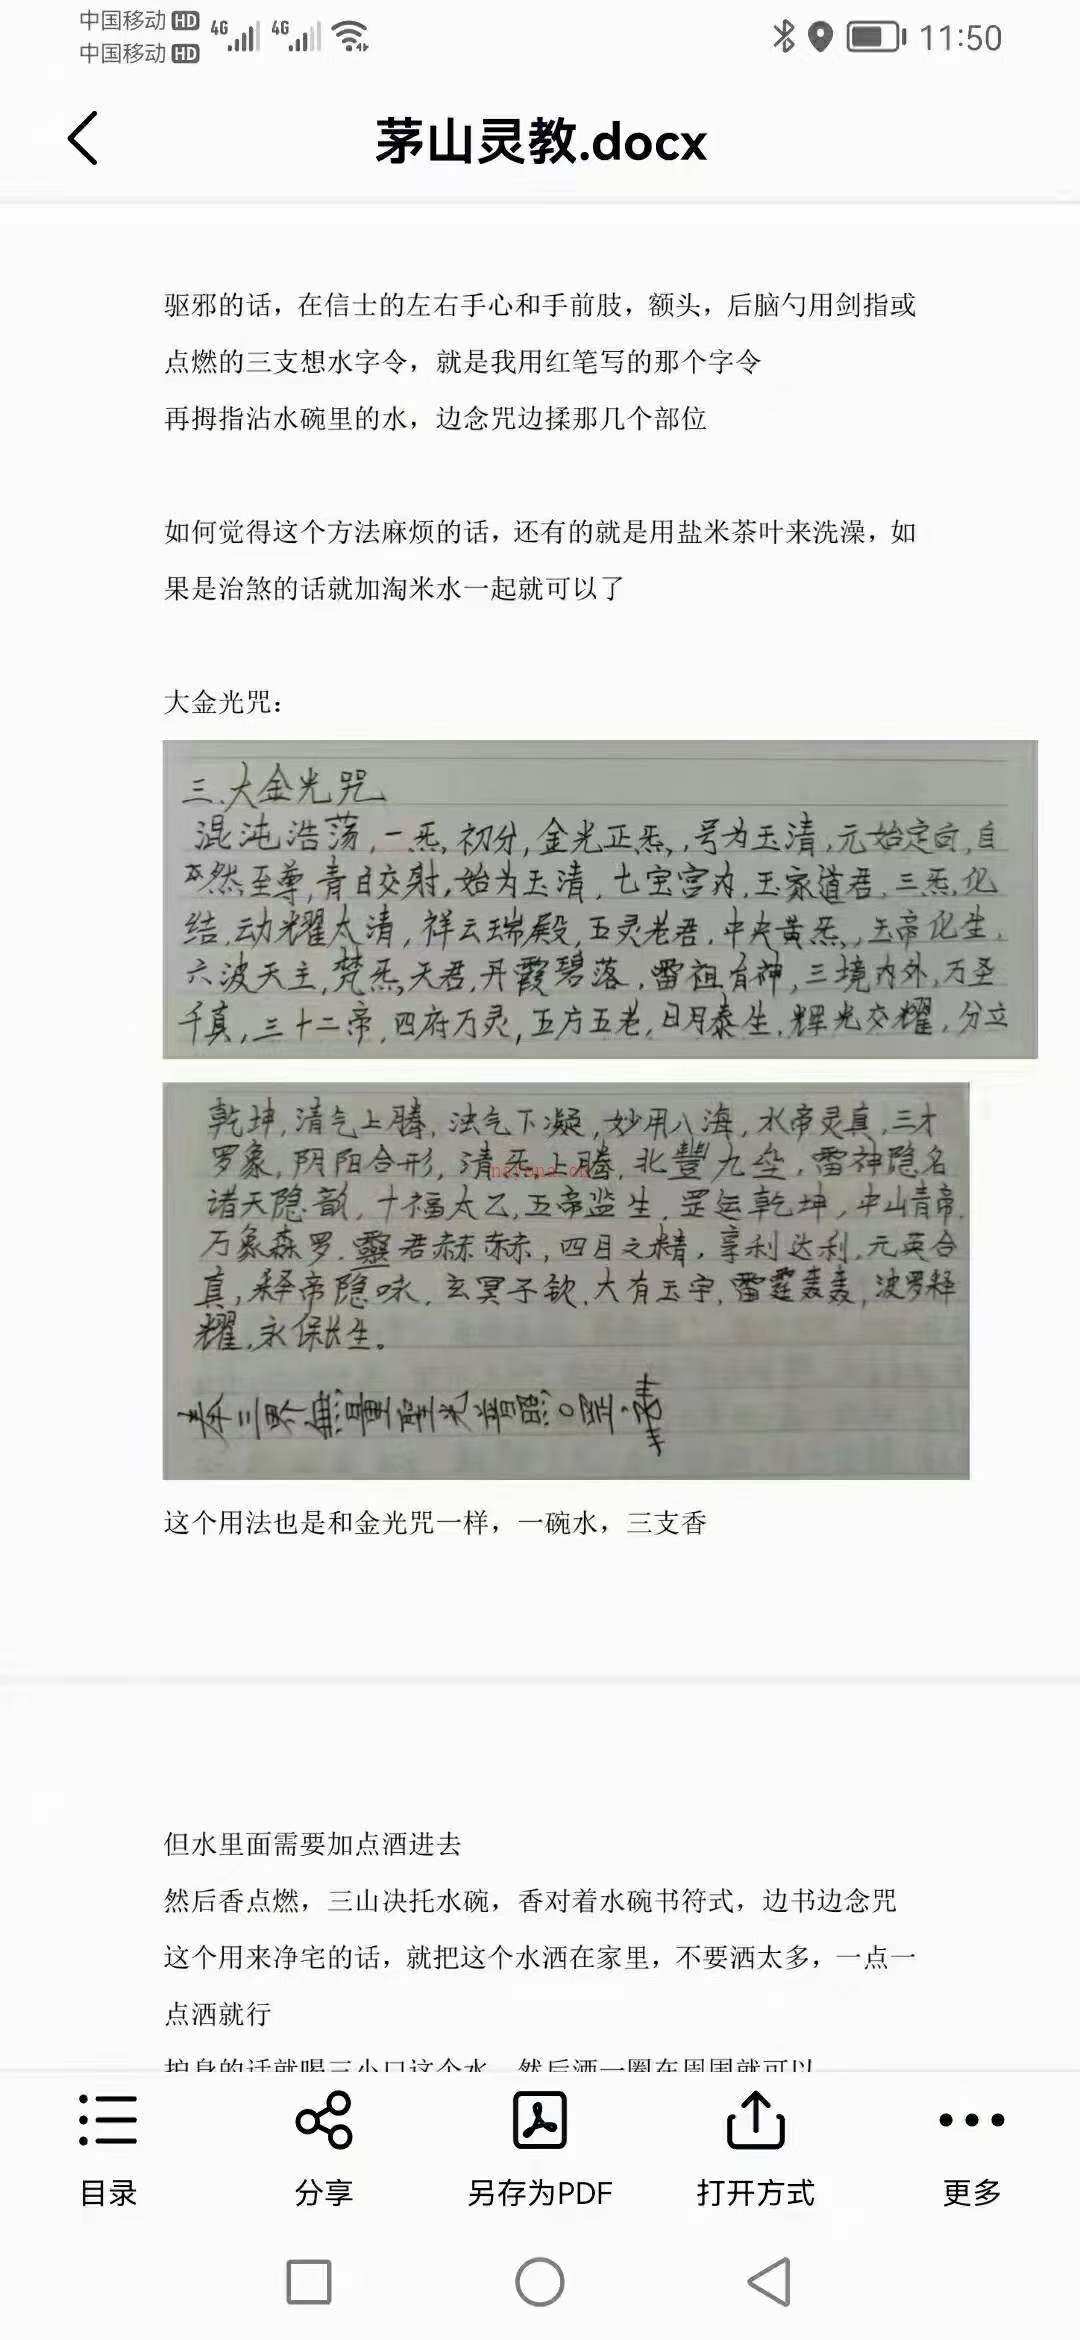 中国移动 HD 4G 4G 11:50
中国移动 HD
茅山灵教.docx
驱邪的话，在信士的左右手心和手前肢，额头，后脑勺用剑指或
点燃的三支想水字令，就是我用红笔写的那个字令
再拇指沾水碗里的水，边念咒边揉那几个部位
如何觉得这个方法麻烦的话，还有的就是用盐米茶叶来洗澡，如
果是治煞的话就加淘米水一起就可以了
大金光咒：
三.大金光咒
混沌浩荡，一炁初分，金光正炁，号为玉清，元始定，自
然至尊，青日交射，始为玉清，七宝宫内，玉家道君，三炁化
结，动耀太清，祥云瑞殿，五灵老君，中央黄炁，玉帝化生，
六波天主，梵炁天君，丹霞碧落，雷祖有神，三境内外，万圣
千真，三十二帝，四府万灵，五方五老，日月泰生，辉光交耀，分立
乾坤，清气上腾，法气下凝，妙用八海，水帝灵真，三才
罗象，阴阳合形，清炁上腾，北豐九垒，雷神隐名
nayona.cn
诸天隐韵，十福太乙，五帝监生，罡运乾坤，中山青帝，
万象森罗，靈君赫赫，四目之精，享利达利，元英合
真，释帝隐味，玄冥子钦，大有玉宇，雷霆轰轰，波罗释
耀，永保长生。
奉三界無量聖光普照
这个用法也是和金光咒一样，一碗水，三支香
但水里面需要加点酒进去
然后香点燃，三山决托水碗，香对着水碗书符式，边书边念咒
这个用来净宅的话，就把这个水洒在家里，不要洒太多，一点一
点洒就行
护身的话就喝三小口这个水，然后洒一圈在周围就可以
目录 分享 另存为PDF 打开方式 更多